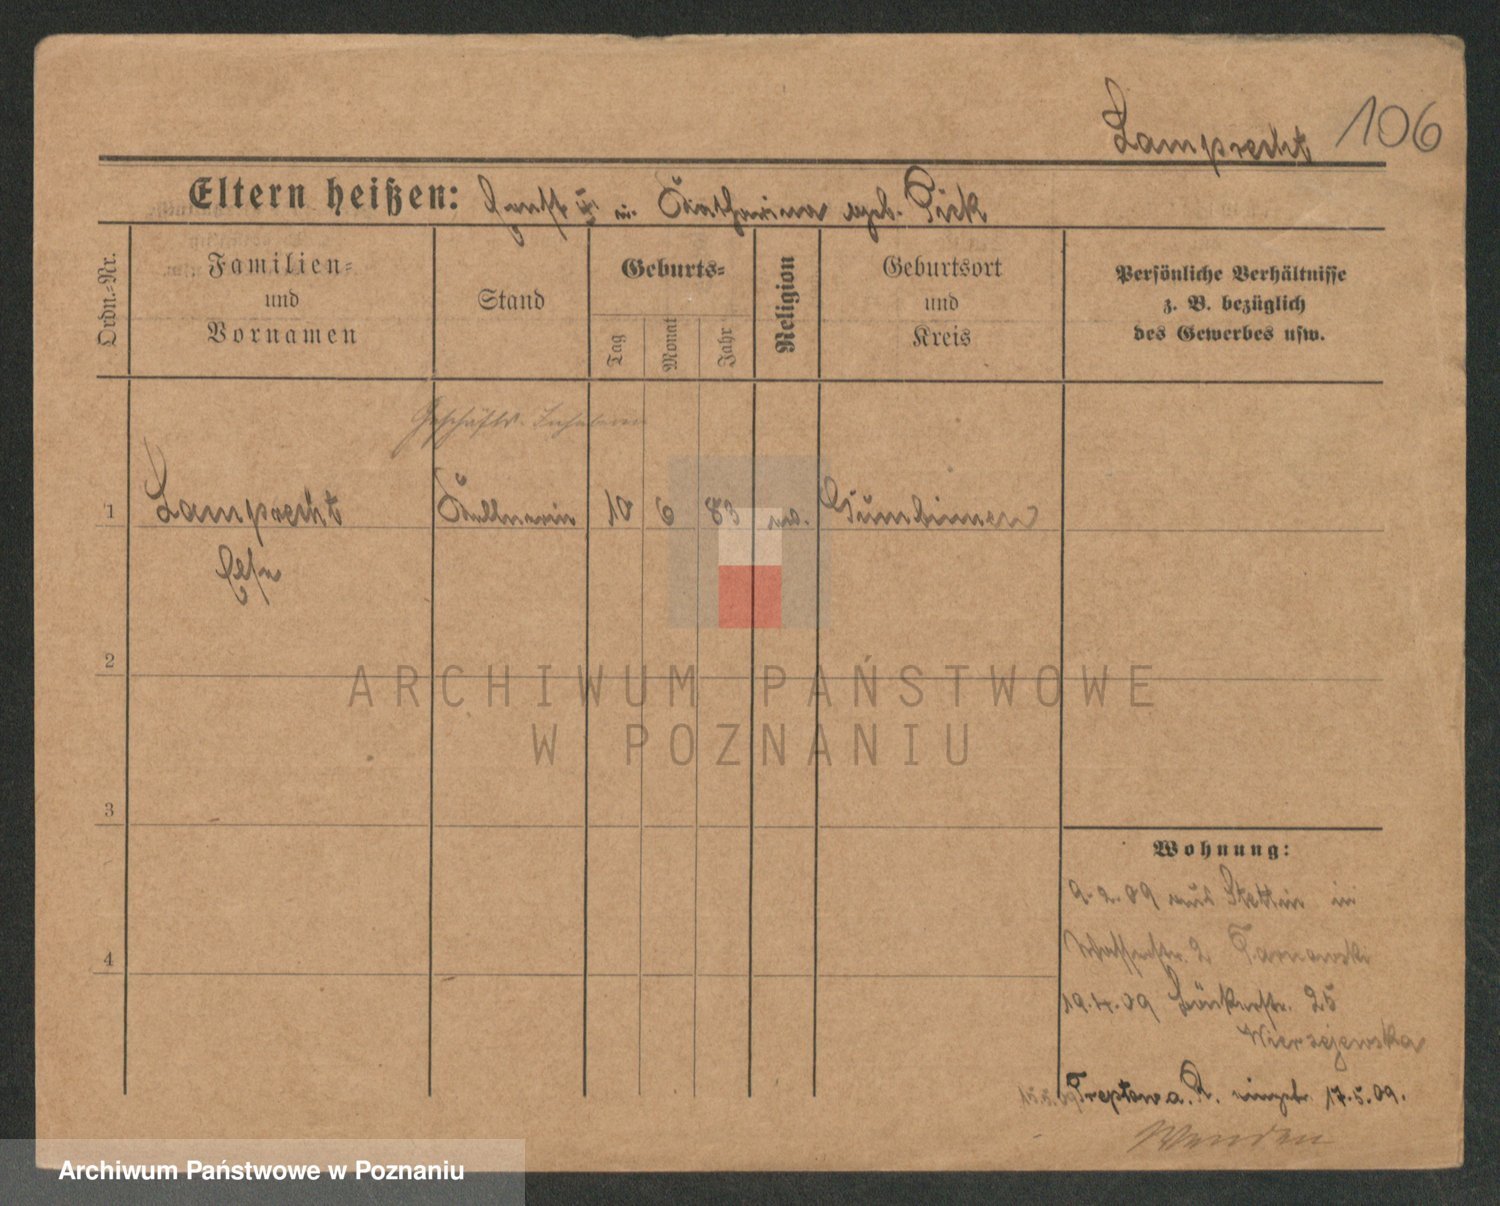 Lamprecht 106
Eltern heißen: u. Katharina geb. Pick
Ordn.=Nr.
Familien=
und
Vornamen
Stand
Geburts=
Tag
Monat
Jahr
Religion
Geburtsort
und
Kreis
Persönliche Verhältnisse
z. B. bezüglich
des Gewerbes usw.
Geschäfts-Inhaberin
1 Lamprecht Kellnerin 10 6 83 ev. Gumbinnen
Else
2
3
4
ARCHIWUM PAŃSTWOWE
W POZNANIU
Wohnung:
9.2.09 aus Stettin in
2 Tarnowski
19.4.09 Bäckerstr. 25
Wiersejewska
15.5.09 Treptow a. R. 17.5.09.
Wenden
Archiwum Państwowe w Poznaniu